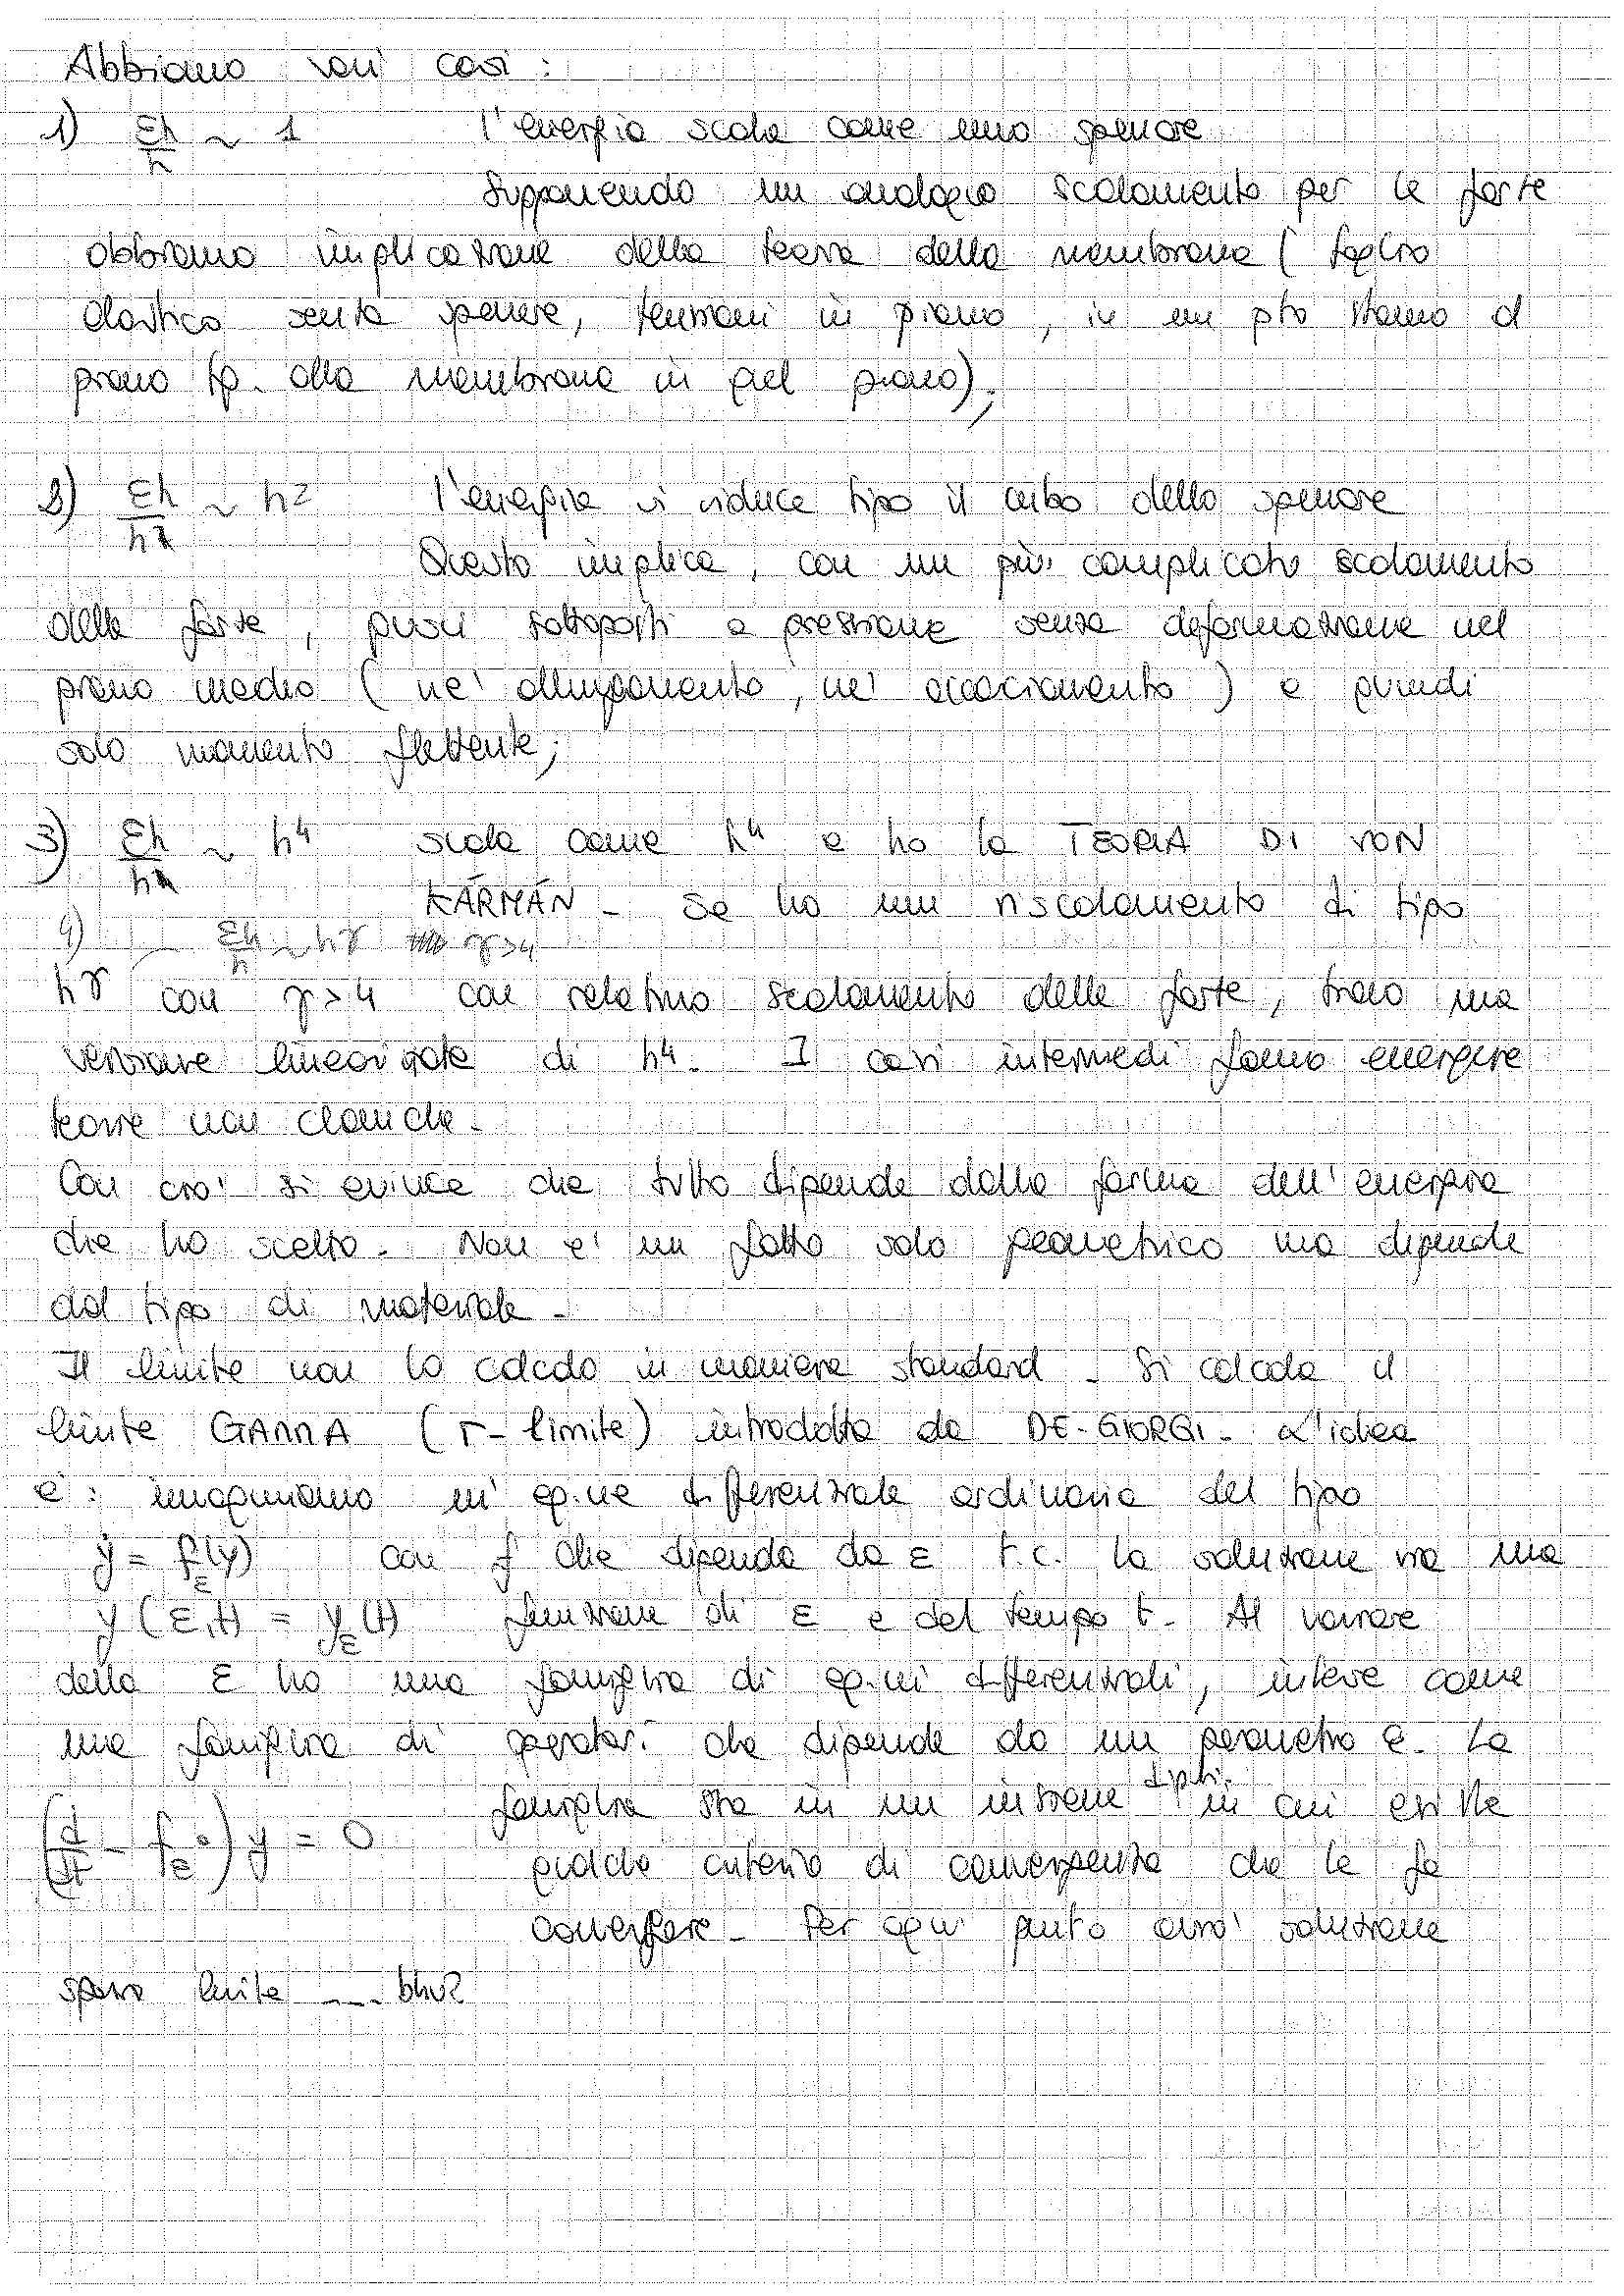 Abbiamo vari casi:
1) Eh/h ~ 1 l'energia scala come uno spessore
Supponendo un analogo scalamento per le forze
abbiamo implicazione della teoria della membrana (foglio
elastico senza spessore, tensioni in piano, in un pto stanno nel
piano tg. alla membrana in quel piano);
2) Eh/h ~ h² l'energia si riduce tipo il cubo dello spessore
Questo implica, con un più complicato scalamento
delle forze, sottoposti a pressione senza deformazione nel
piano medio (ne' allungamento, ne' accorciamento) e quindi
solo momento flettente;
3) Eh/h ~ h⁴ scala come h⁴ e ho la TEORIA DI VON
KÁRMÁN - Se ho un riscalamento di tipo
4) Eh/h ~ hγ γ>4
hγ con γ>4 con relativo scalamento delle forze, trovo una
versione linearizzata di h⁴. I casi intermedi fanno emergere
teorie non classiche.
Con cio' si evince che tutto dipende dalla forma dell'energia
che ho scelto. Non e' un fatto solo geometrico ma dipende
dal tipo di materiale.
Il limite non lo calcolo in maniera standard. Si calcola il
limite GAMMA (Γ-limite) introdotto da DE-GIORGI. L'idea
e': immaginiamo un' eq.ne differenziale ordinaria del tipo
ẏ = f_ε(y) con f che dipenda da ε t.c. la soluzione sia una
y(ε,t) = y_ε(t) funzione di ε e del tempo t. Al variare
della ε ho una famiglia di eq.ni differenziali, intese come
una famiglia di operatori che dipende da un parametro ε. La
(d/dt - f_ε∘) y = 0 famiglia sta in un insieme in cui esiste
qualche criterio di convergenza che le fa
convergere. Per ogni punto avro' soluzione
spazio limite ---